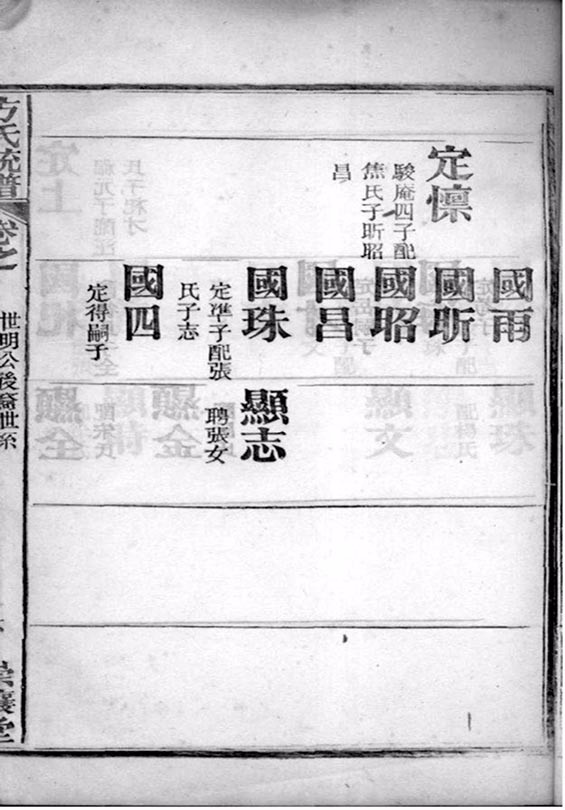 定懍
駿庵四子配
焦氏子昕昭
昌
國雨
國昕
國昭
國昌
國珠
定準子配張
氏子志
國四
定得嗣子
顯志
聘張女
方氏統譜
卷之
世明公後裔世系